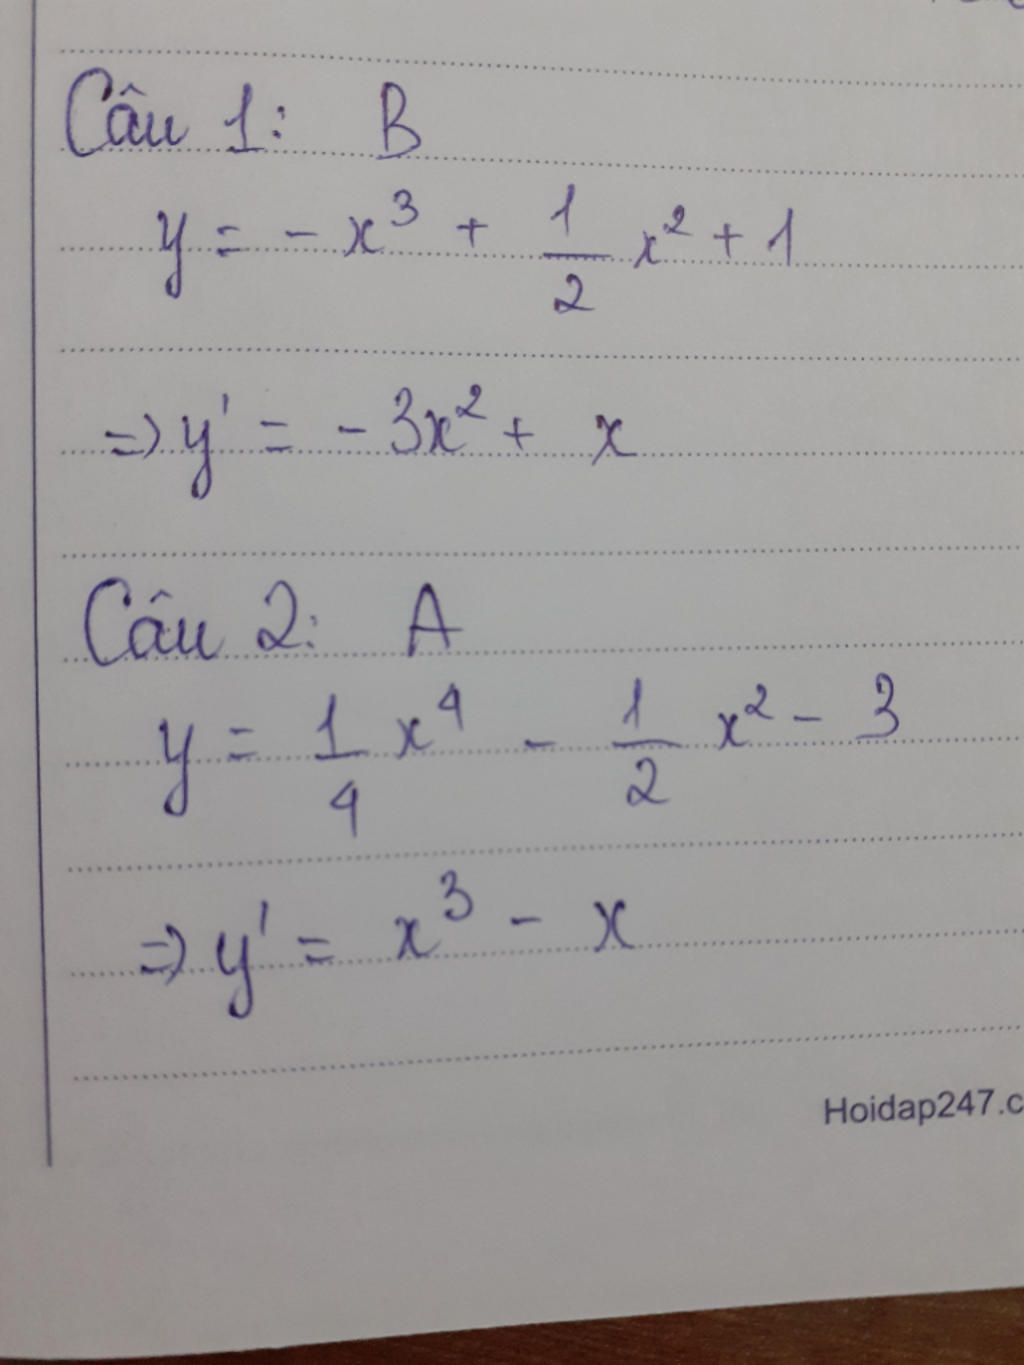 Câu 1: B
y = - x³ + 1/2 x² + 1
=> y' = - 3x² + x
Câu 2: A
y = 1/4 x⁴ - 1/2 x² - 3
=> y' = x³ - x
Hoidap247.c